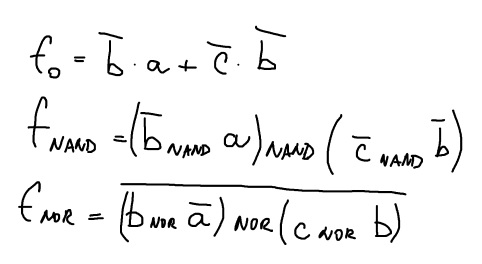 f₀ = b̅ · a + c̅ · b̅
f_NAND = (b̅ NAND a) NAND (c̅ NAND b̅)
f_NOR = \overline{(b NOR a̅) NOR (c NOR b)}